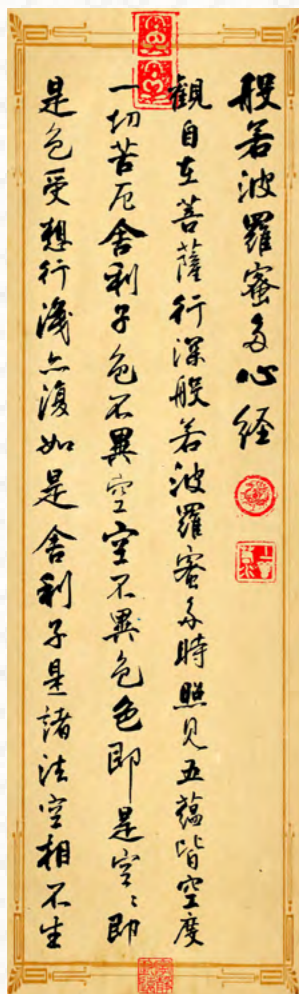 般若波羅蜜多心経
觀自在菩薩行深般若波羅蜜多時照見五蘊皆空度
一切苦厄舍利子色不異空空不異色色即是空〻即
是色受想行識亦復如是舍利子是諸法空相不生